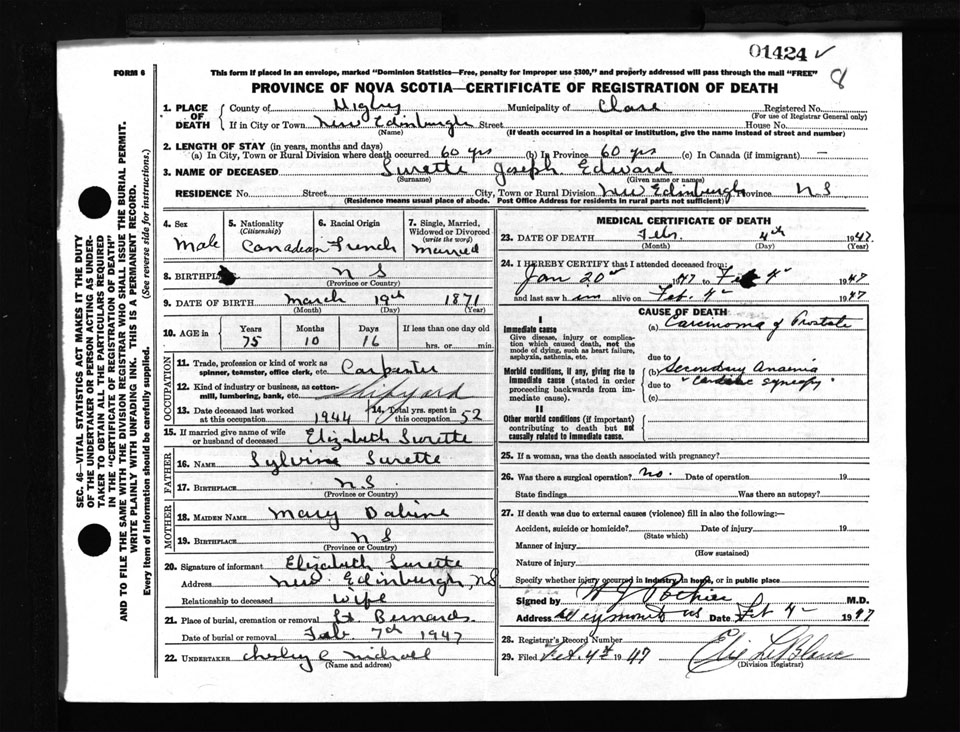 01424 ✓
8
FORM 6
This form if placed in an envelope, marked "Dominion Statistics—Free, penalty for improper use $300," and properly addressed will pass through the mail "FREE"
PROVINCE OF NOVA SCOTIA—CERTIFICATE OF REGISTRATION OF DEATH
SEC. 46—VITAL STATISTICS ACT MAKES IT THE DUTY
OF THE UNDERTAKER OR PERSON ACTING AS UNDER-
TAKER TO OBTAIN ALL THE PARTICULARS REQUIRED
IN THE "CERTIFICATE OF REGISTRATION OF DEATH"
AND TO FILE THE SAME WITH THE DIVISION REGISTRAR WHO SHALL ISSUE THE BURIAL PERMIT.
WRITE PLAINLY WITH UNFADING INK. THIS IS A PERMANENT RECORD.
Every item of information should be carefully supplied. (See reverse side for instructions.)
1. PLACE OF DEATH County of Digby Municipality of Clare Registered No.
(For use of Registrar General only)
If in City or Town New Edinburgh Street House No.
(Name) (If death occurred in a hospital or institution, give the name instead of street and number)
2. LENGTH OF STAY (in years, months and days)
(a) In City, Town or Rural Division where death occurred 60 yrs (b) In Province 60 yrs (c) In Canada (if immigrant) —
3. NAME OF DECEASED Surette Joseph Edward
(Surname) (Given name or names)
RESIDENCE No. Street City, Town or Rural Division New Edinburgh Province N S
(Residence means usual place of abode. Post Office Address for residents in rural parts not sufficient)
4. Sex Male
5. Nationality (Citizenship) Canadian
6. Racial Origin French
7. Single, Married, Widowed or Divorced (write the word) Married
8. BIRTHPL N S
(Province or Country)
9. DATE OF BIRTH March 19th 1871
(Month) (Day) (Year)
10. AGE in Years Months Days If less than one day old
75 10 16 hrs. or min.
OCCUPATION
11. Trade, profession or kind of work as spinner, teamster, office clerk, etc. Carpenter
12. Kind of industry or business, as cotton-mill, lumbering, bank, etc. Shipyard
13. Date deceased last worked at this occupation 1944 14. Total yrs. spent in this occupation 52
15. If married give name of wife or husband of deceased Elizabeth Surette
FATHER
16. NAME Sylvine Surette
17. BIRTHPLACE N.S.
(Province or Country)
MOTHER
18. MAIDEN NAME Mary
19. BIRTHPLACE N S
(Province or Country)
20. Signature of informant Elizabeth Surette
Address New Edinburgh, NS
Relationship to deceased Wife
21. Place of burial, cremation or removal St. Bernards
Date of burial or removal Feb. 7th 1947
22. UNDERTAKER
(Name and address)
MEDICAL CERTIFICATE OF DEATH
23. DATE OF DEATH Feb. 4th 1947
(Month) (Day) (Year)
24. I HEREBY CERTIFY that I attended deceased from:
Jan 20 1947 to Feb 4 1947
and last saw him alive on Feb. 4 1947
CAUSE OF DEATH
I
Immediate cause (a) Carcinoma of Prostate
Give disease, injury or complica-
tion which caused death, not the
mode of dying, such as heart failure,
asphyxia, asthenia, etc. due to
Morbid conditions, if any, giving rise to (b) Secondary Anaemia
immediate cause (stated in order due to "Cardiac syncope"
proceeding backwards from im-
mediate cause). (c)
II
Other morbid conditions (if important)
contributing to death but not
causally related to immediate cause.
25. If a woman, was the death associated with pregnancy?
26. Was there a surgical operation? no. Date of operation 19
State findings Was there an autopsy?
27. If death was due to external causes (violence) fill in also the following:—
Accident, suicide or homicide? Date of injury 19
(State which)
Manner of injury
(How sustained)
Nature of injury
Specify whether injury occurred in industry, in home, or in public place
Signed by M.D.
Address Weymouth NS Date Feb 4 1947
28. Registrar's Record Number
29. Filed Feb. 4th 1947 LeBlanc
(Division Registrar)